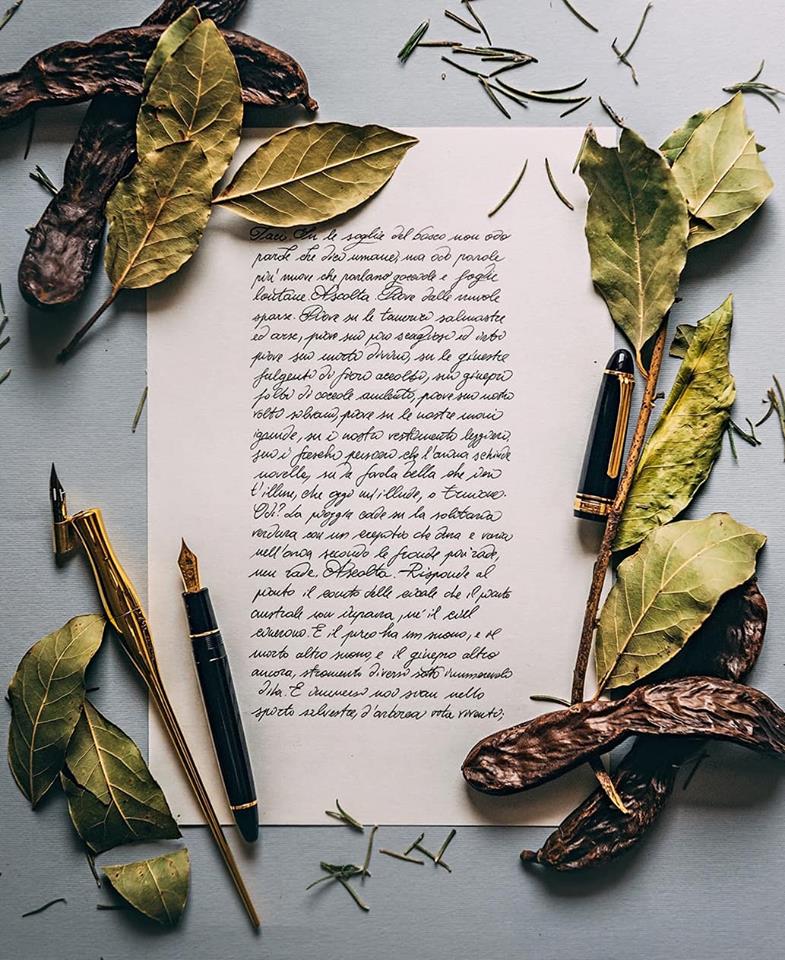 Taci. Su le soglie del bosco non odo
parole che dici umane; ma odo parole
più nuove che parlano gocciole e foglie
lontane. Ascolta. Piove dalle nuvole
sparse. Piove su le tamerici salmastre
ed arse, piove sui pini scagliosi ed irti
piove sui mirti divini, su le ginestre
fulgenti di fiori accolti, sui ginepri
folti di coccole aulenti, piove sui nostri
volti silvani, piove su le nostre mani
ignude, su i nostri vestimenti leggieri,
sui i freschi pensieri che l'anima schiude
novella, su la favola bella che ieri
t'illuse, che oggi m'illude, o Ermione.
Odi? La pioggia cade su la solitaria
verdura con un crepitio che dura e varia
nell'aria secondo le fronde più rade,
men rade. Ascolta. Risponde al
pianto il canto delle cicale che il pianto
australe non impaura, né il ciel
cinerino. E il pino ha un suono, e il
mirto altro suono, e il ginepro altro
ancora, stromenti diversi sotto innumerevoli
dita. E immersi noi siam nello
spirto silvestre, d'arborea vita viventi;